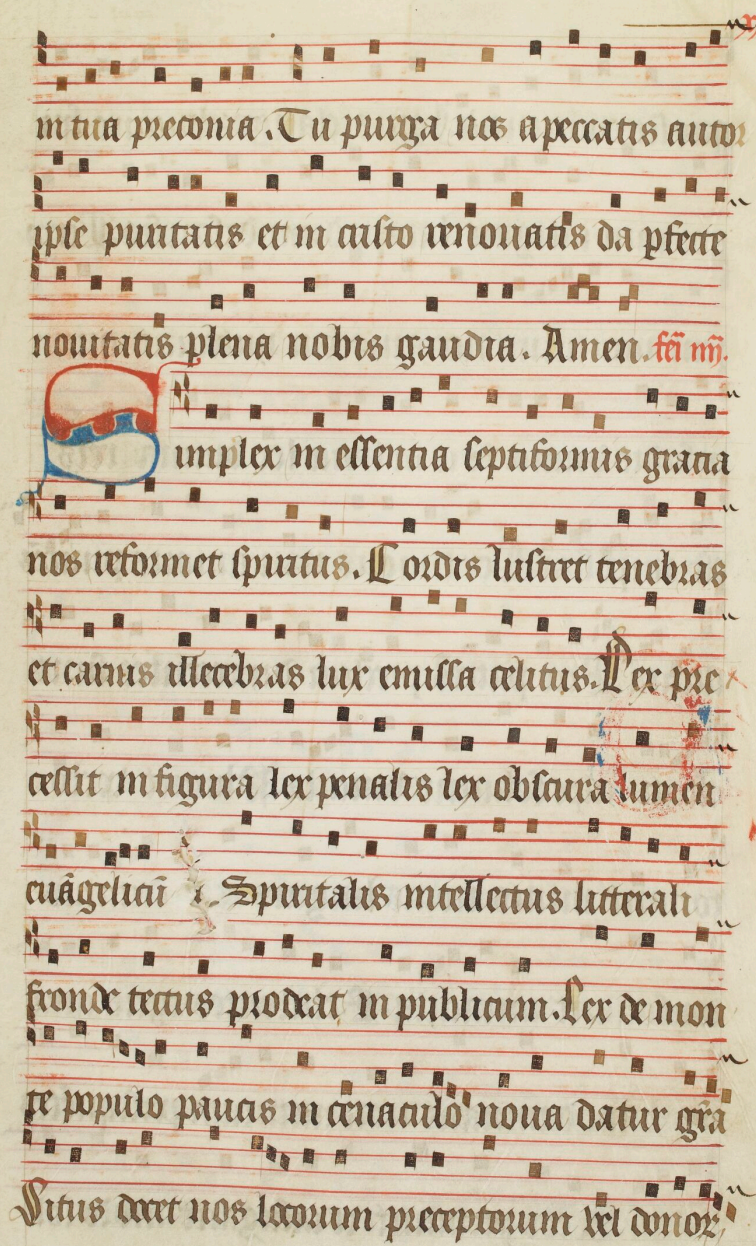 in tua preconia. Tu purga nos a peccatis autor
ipse puritatis et in cristo renouatis da pfecte
nouitatis plena nobis gaudia. Amen. feī
Simplex in essentia septiformis gracia
nos reformet spiritus. Cordis lustret tenebras
et carnis illecebras lux emissa celitus. Lex pre
cessit in figura lex penalis lex obscura lumen
euāgelicū. Spiritalis intellectus litterali
fronde tectus prodeat in publicum. Lex de mon
te populo paucis in cenaculo noua datur gra
Situs docet nos locorum preceptorum vel donor